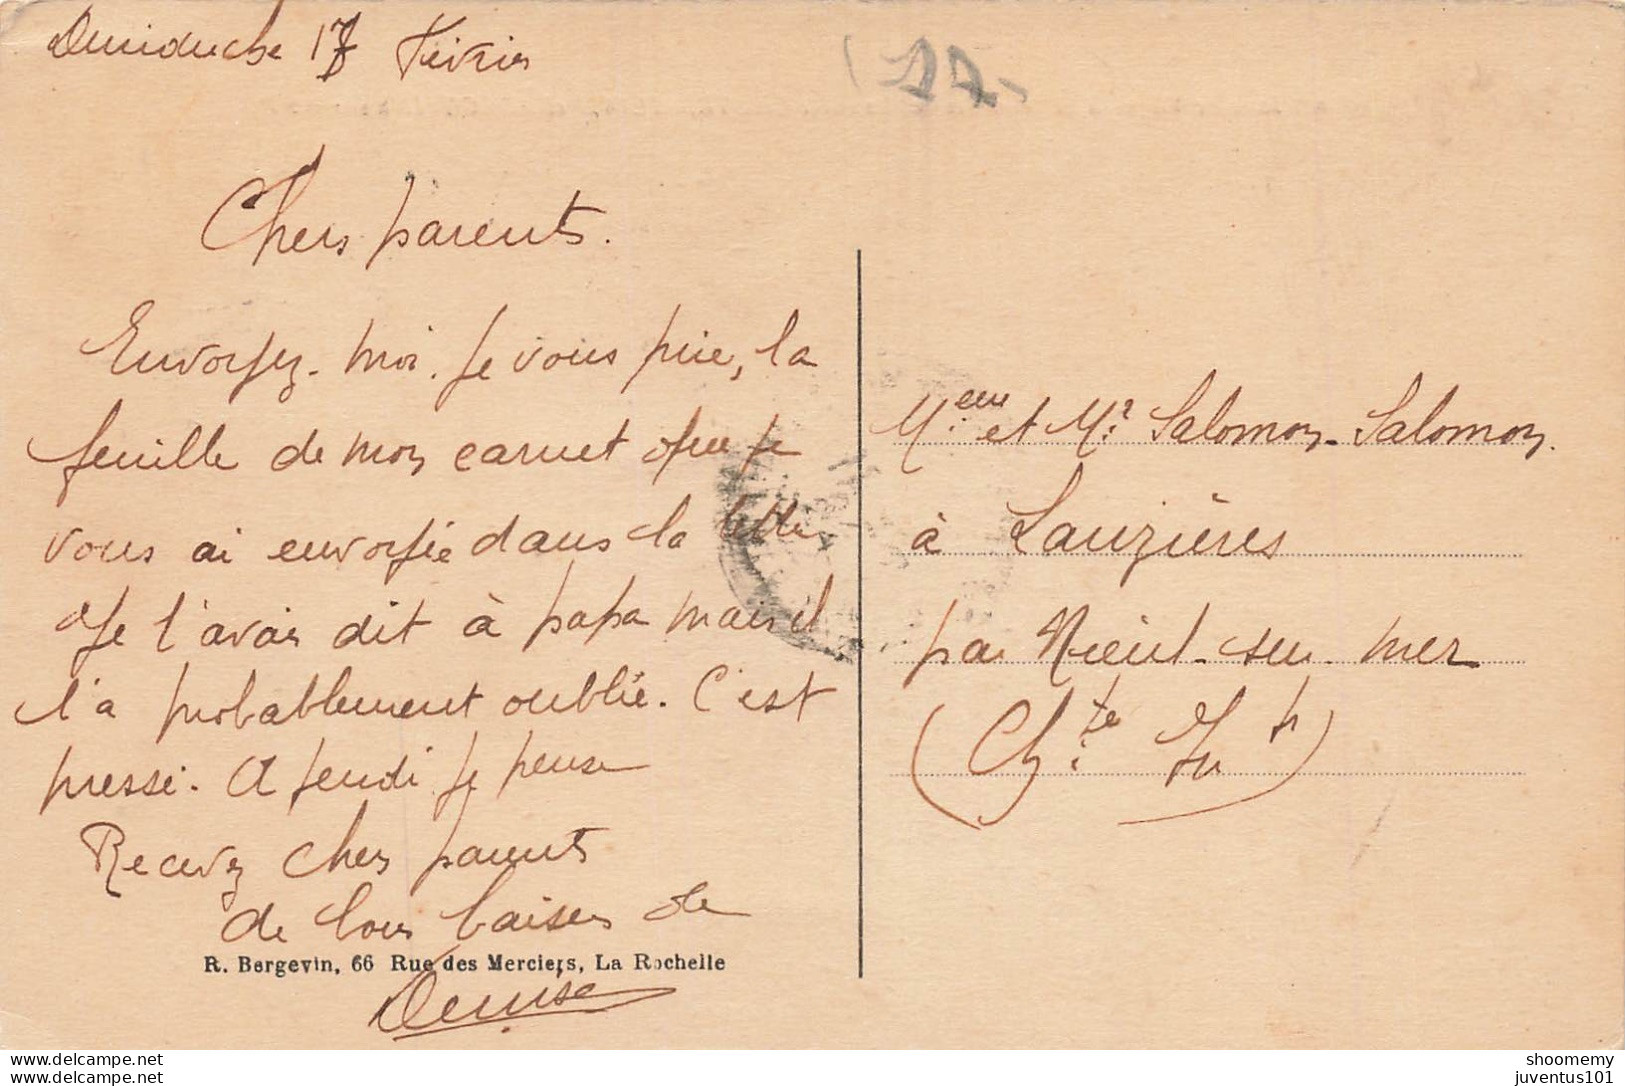 Dimanche 17 Février
(17-
Chers parents.
Envoyez-moi. Je vous prie, la
feuille de mon carnet que je
vous ai envoyée dans la lettre
Je l'avais dit à papa mais il
l'a probablement oublié. C'est
pressé. A jeudi je pense
Recevez chers parents
de bons baisers de
R. Bergevin, 66 Rue des Merciers, La Rochelle
Denise
Mme et Mr Salomon-Salomon.
à Lauzières
par Nieul-sur-mer
(Chte Infr)
shoomemy
delcampe.net
juventus101